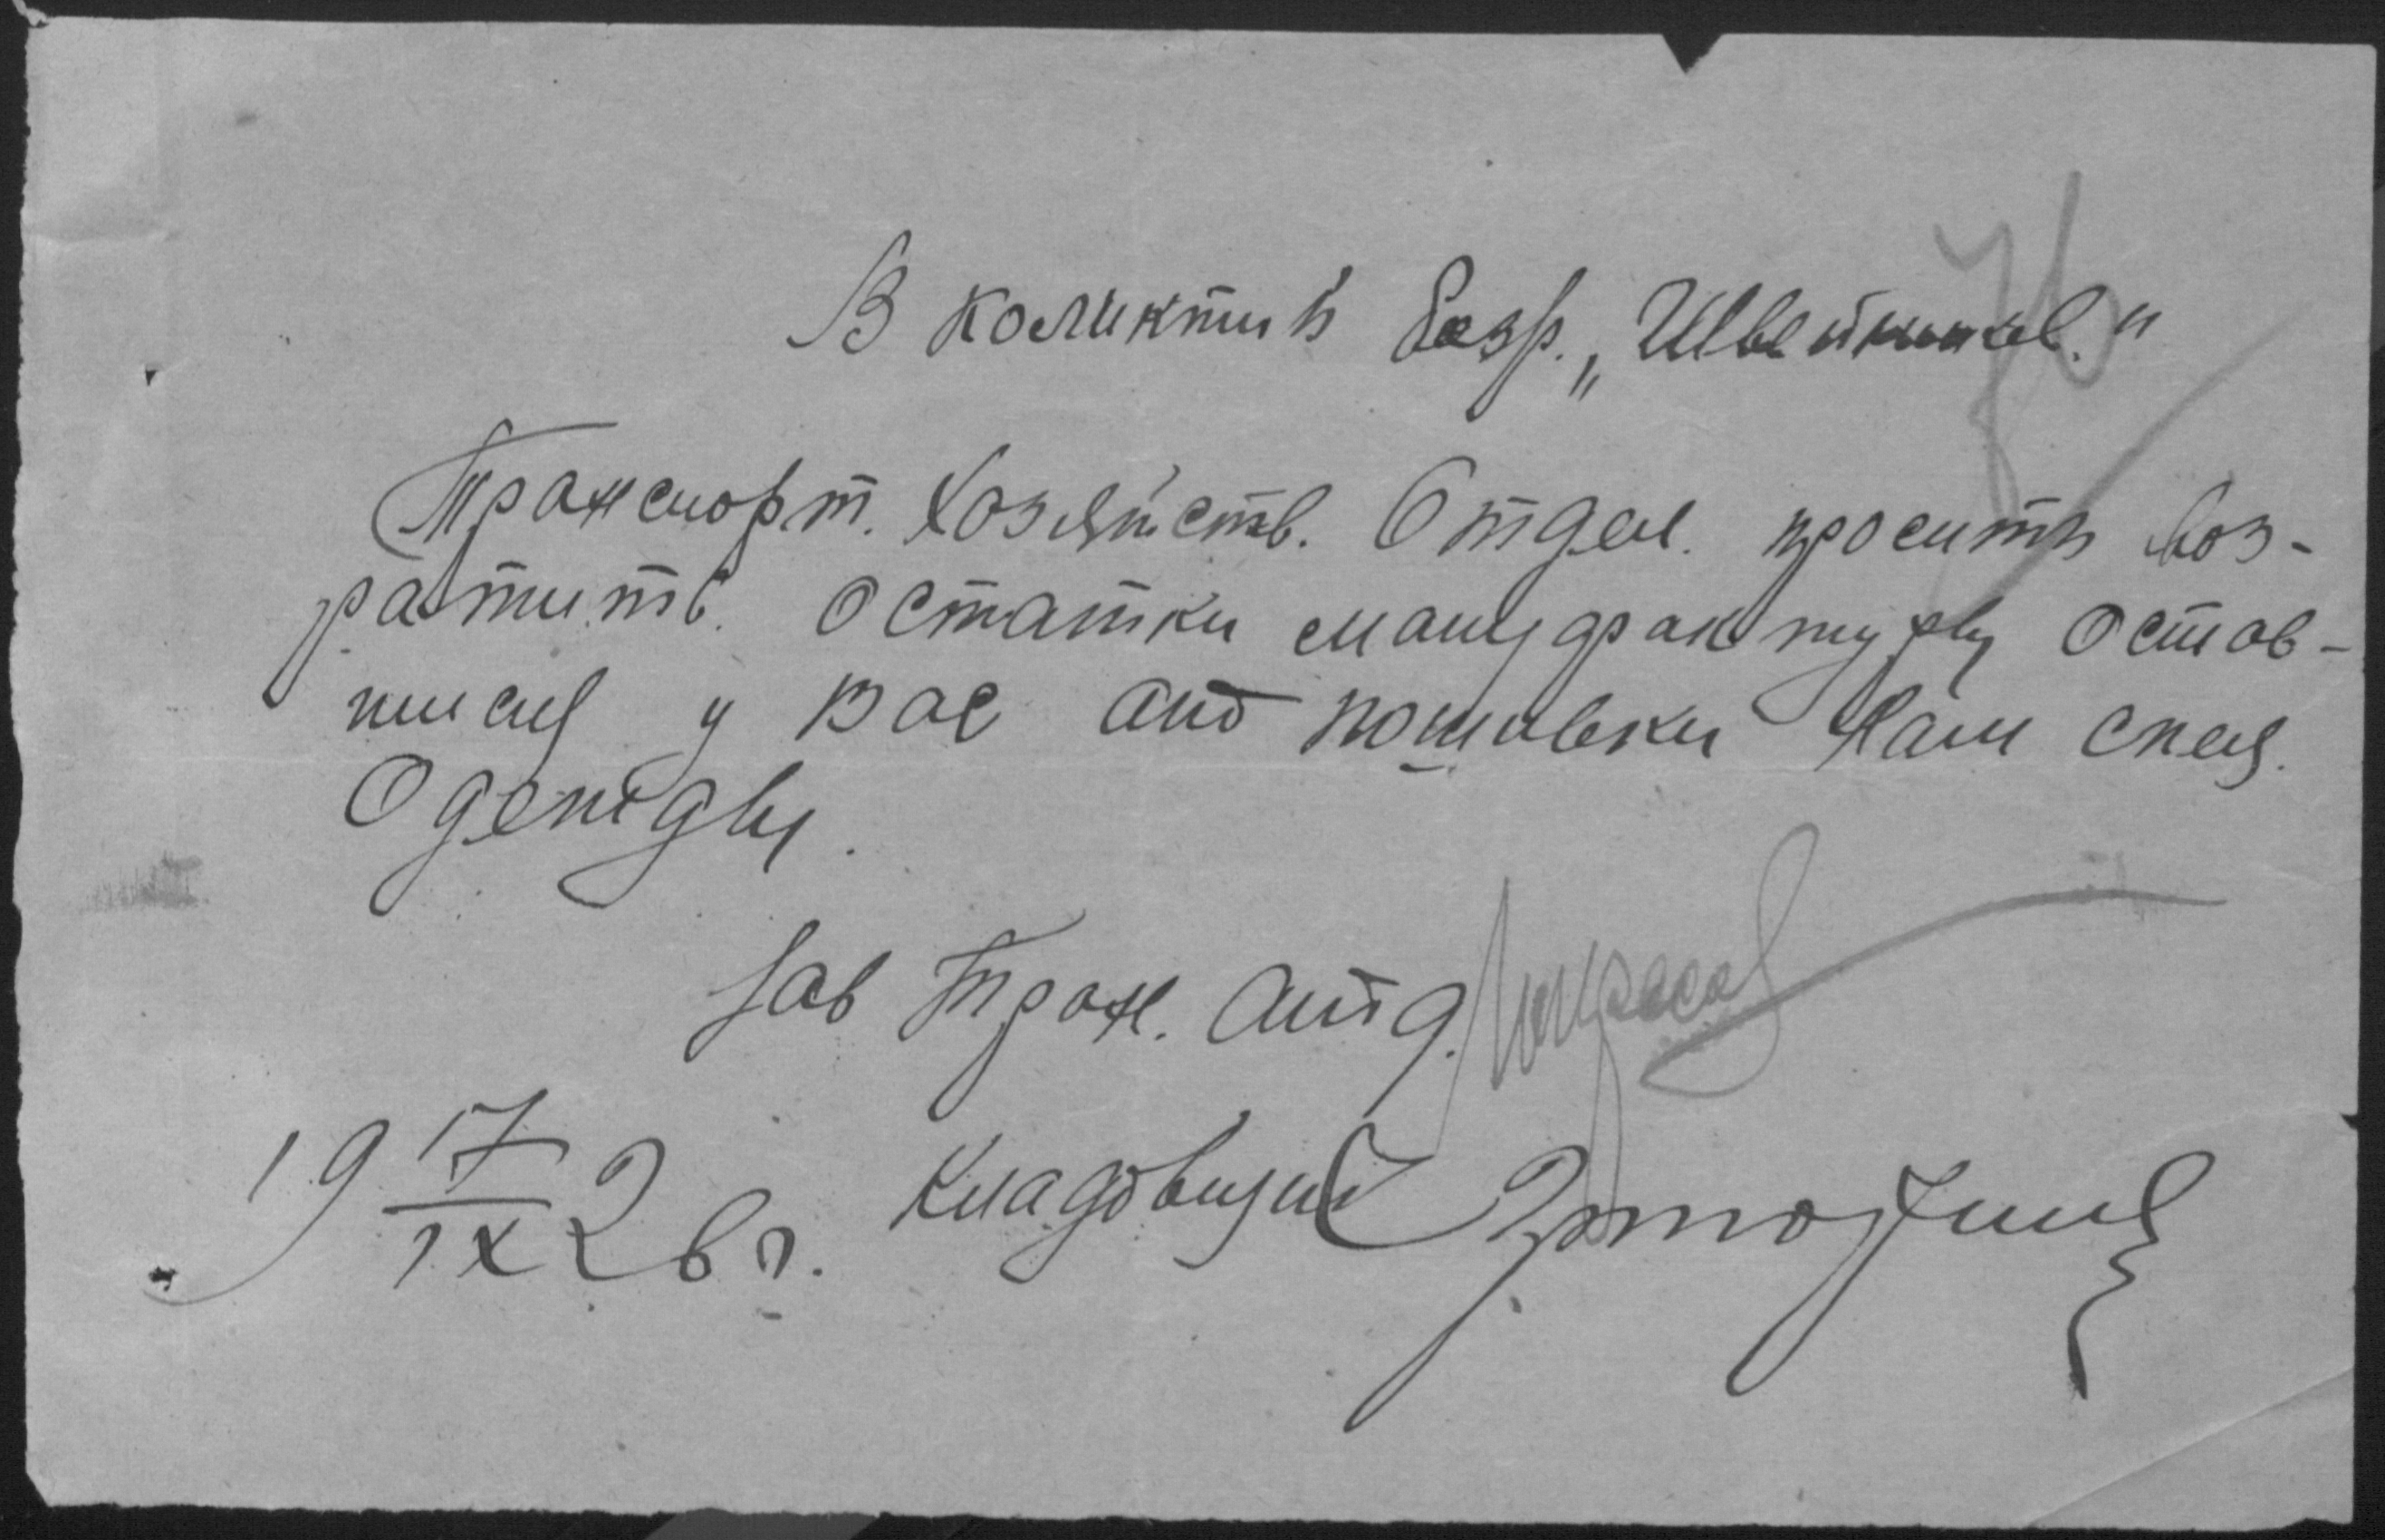 76
В коликтив Безр. „Швейников."
Транспорт. Хозяйств. Отдел. просить воз-
ратить остатки мануфрактуры остав-
шися у Вас от пошивки Нам спец.
Одежды.
Зав Тран. Отд.
19 17/IX 26 г. Кладовщик